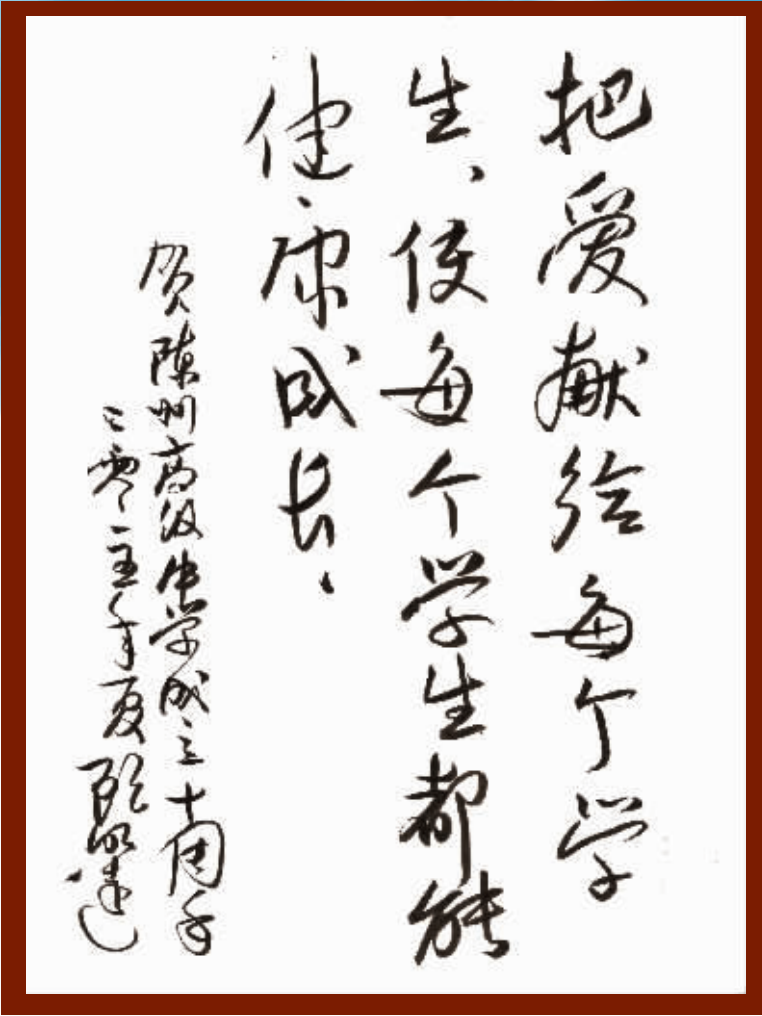 把爱献给每个学
生、使每个学生都能
健康成长.
贺陈州高级中学成立十周年
二零一五年夏 顾明远